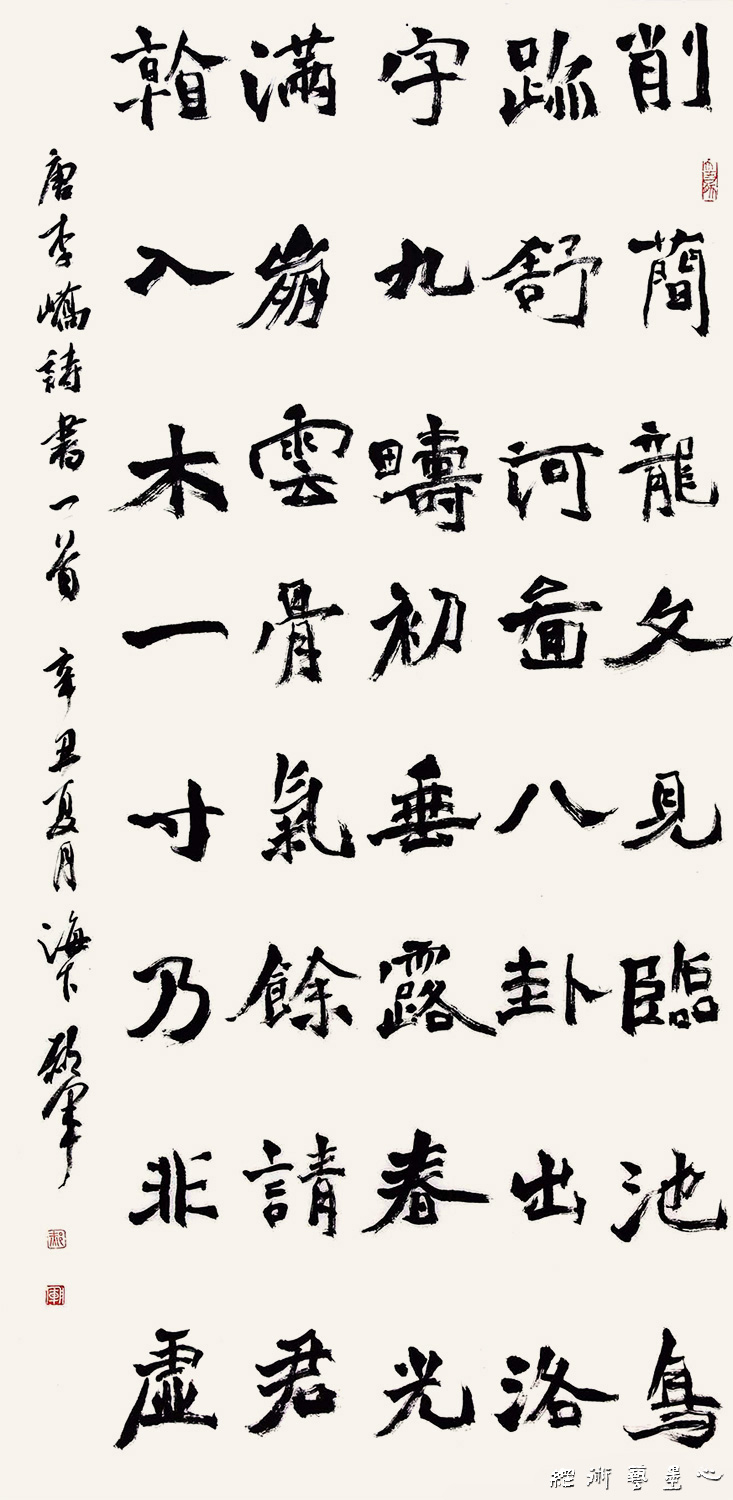 削簡龍文見臨池鳥
跡舒河圖八卦出洛
字九疇初垂露春光
滿崩雲骨氣餘請君
看入木一寸乃非虛
唐李嶠詩書一首 辛丑夏月 海下 郝軍